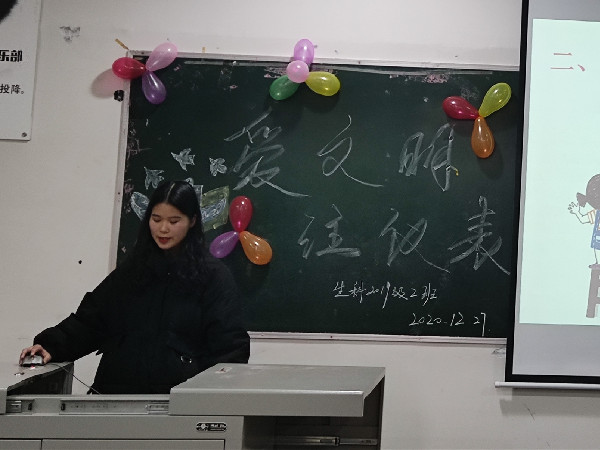 乐部
投降。
二、
爱文明
注仪表
生科2019级2班
2020.12.27